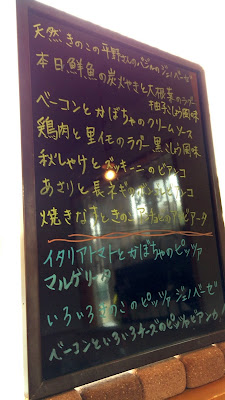 天然きのこの平野さんのバジルのジェノベーゼ
本日鮮魚の炭火やきと大根葉のラグー
柚子こしょう風味
ベーコンとかぼちゃのクリームソース
鶏肉と里イモのラグー 黒こしょう風味
秋しゃけとズッキーニのビアンコ
あさりと長ネギの
焼きなすときのこ
イタリアトマトとかぼちゃのピッツァ
マルゲリータ
いろいろきのこのピッツァ ジェノベーゼ
ベーコンといろいろチーズのピッツァビアンカ